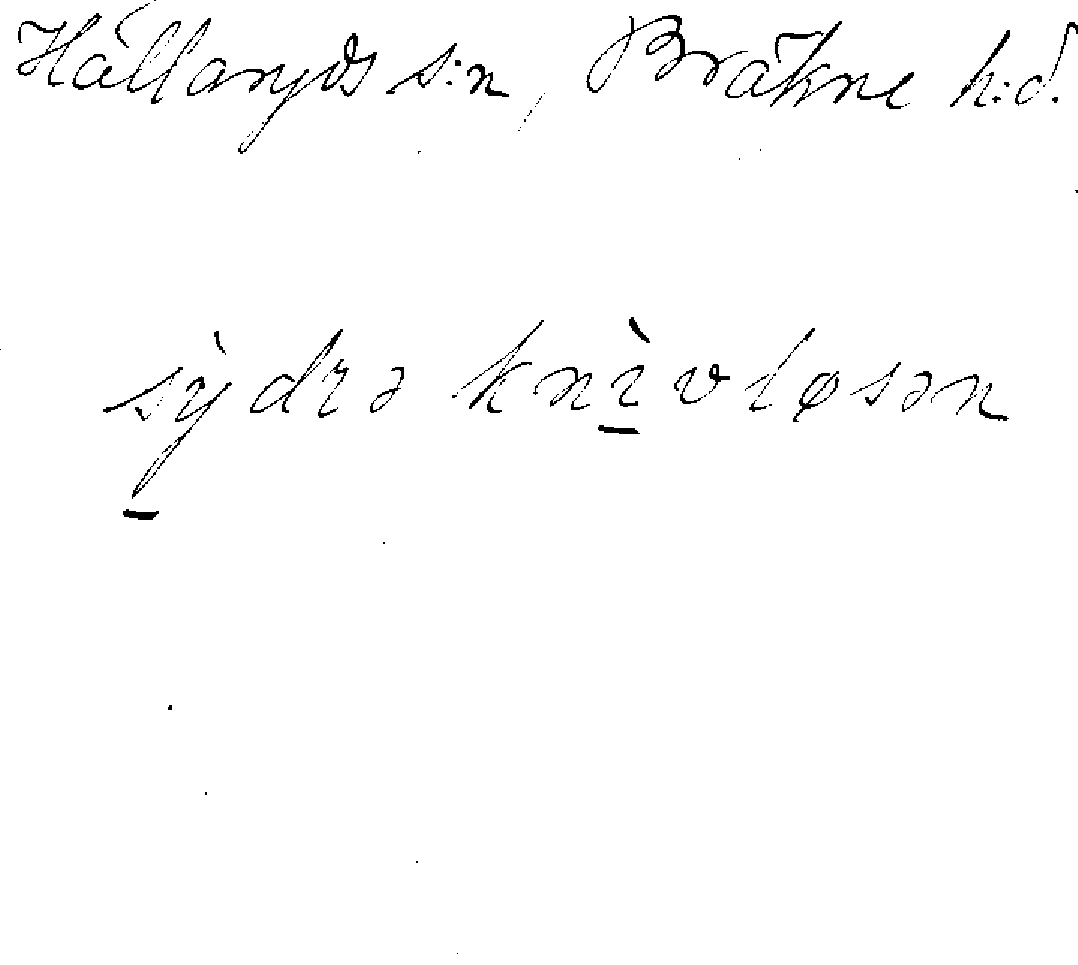 Hällaryds s:n, Bräkne h:d.
sỳ̠drə knɪ̠̀vløsən